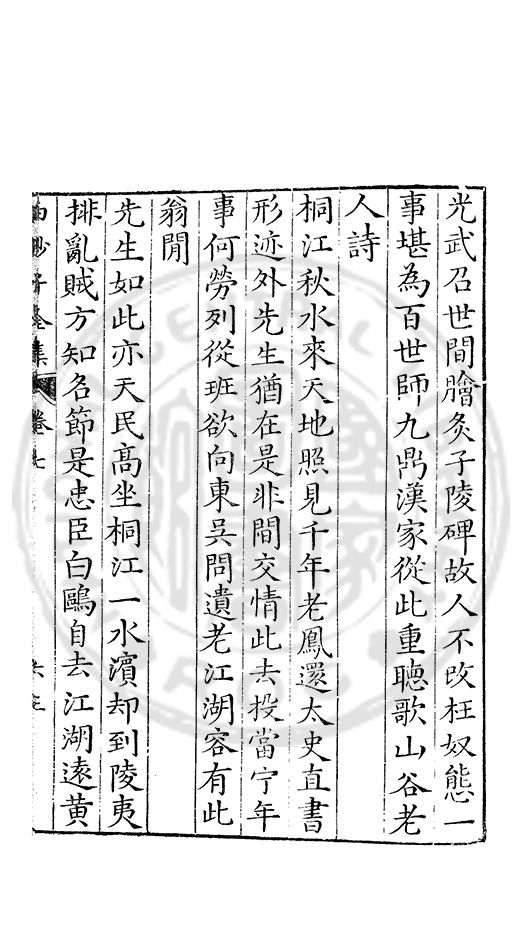 光武召世間膾炙子陵碑故人不改狂奴態一
事堪為百世師九鼎漢家從此重聽歌山谷老
人詩
桐江秋水來天地照見千年老鳳還太史直書
形迹外先生猶在是非間交情此去投當宁年
事何勞列從班欲向東吳問遺老江湖容有此
翁閒
先生如此亦天民高坐桐江一水濱却到陵夷
排亂賊方知名節是忠臣白鷗自去江湖遠黃
全集 卷七